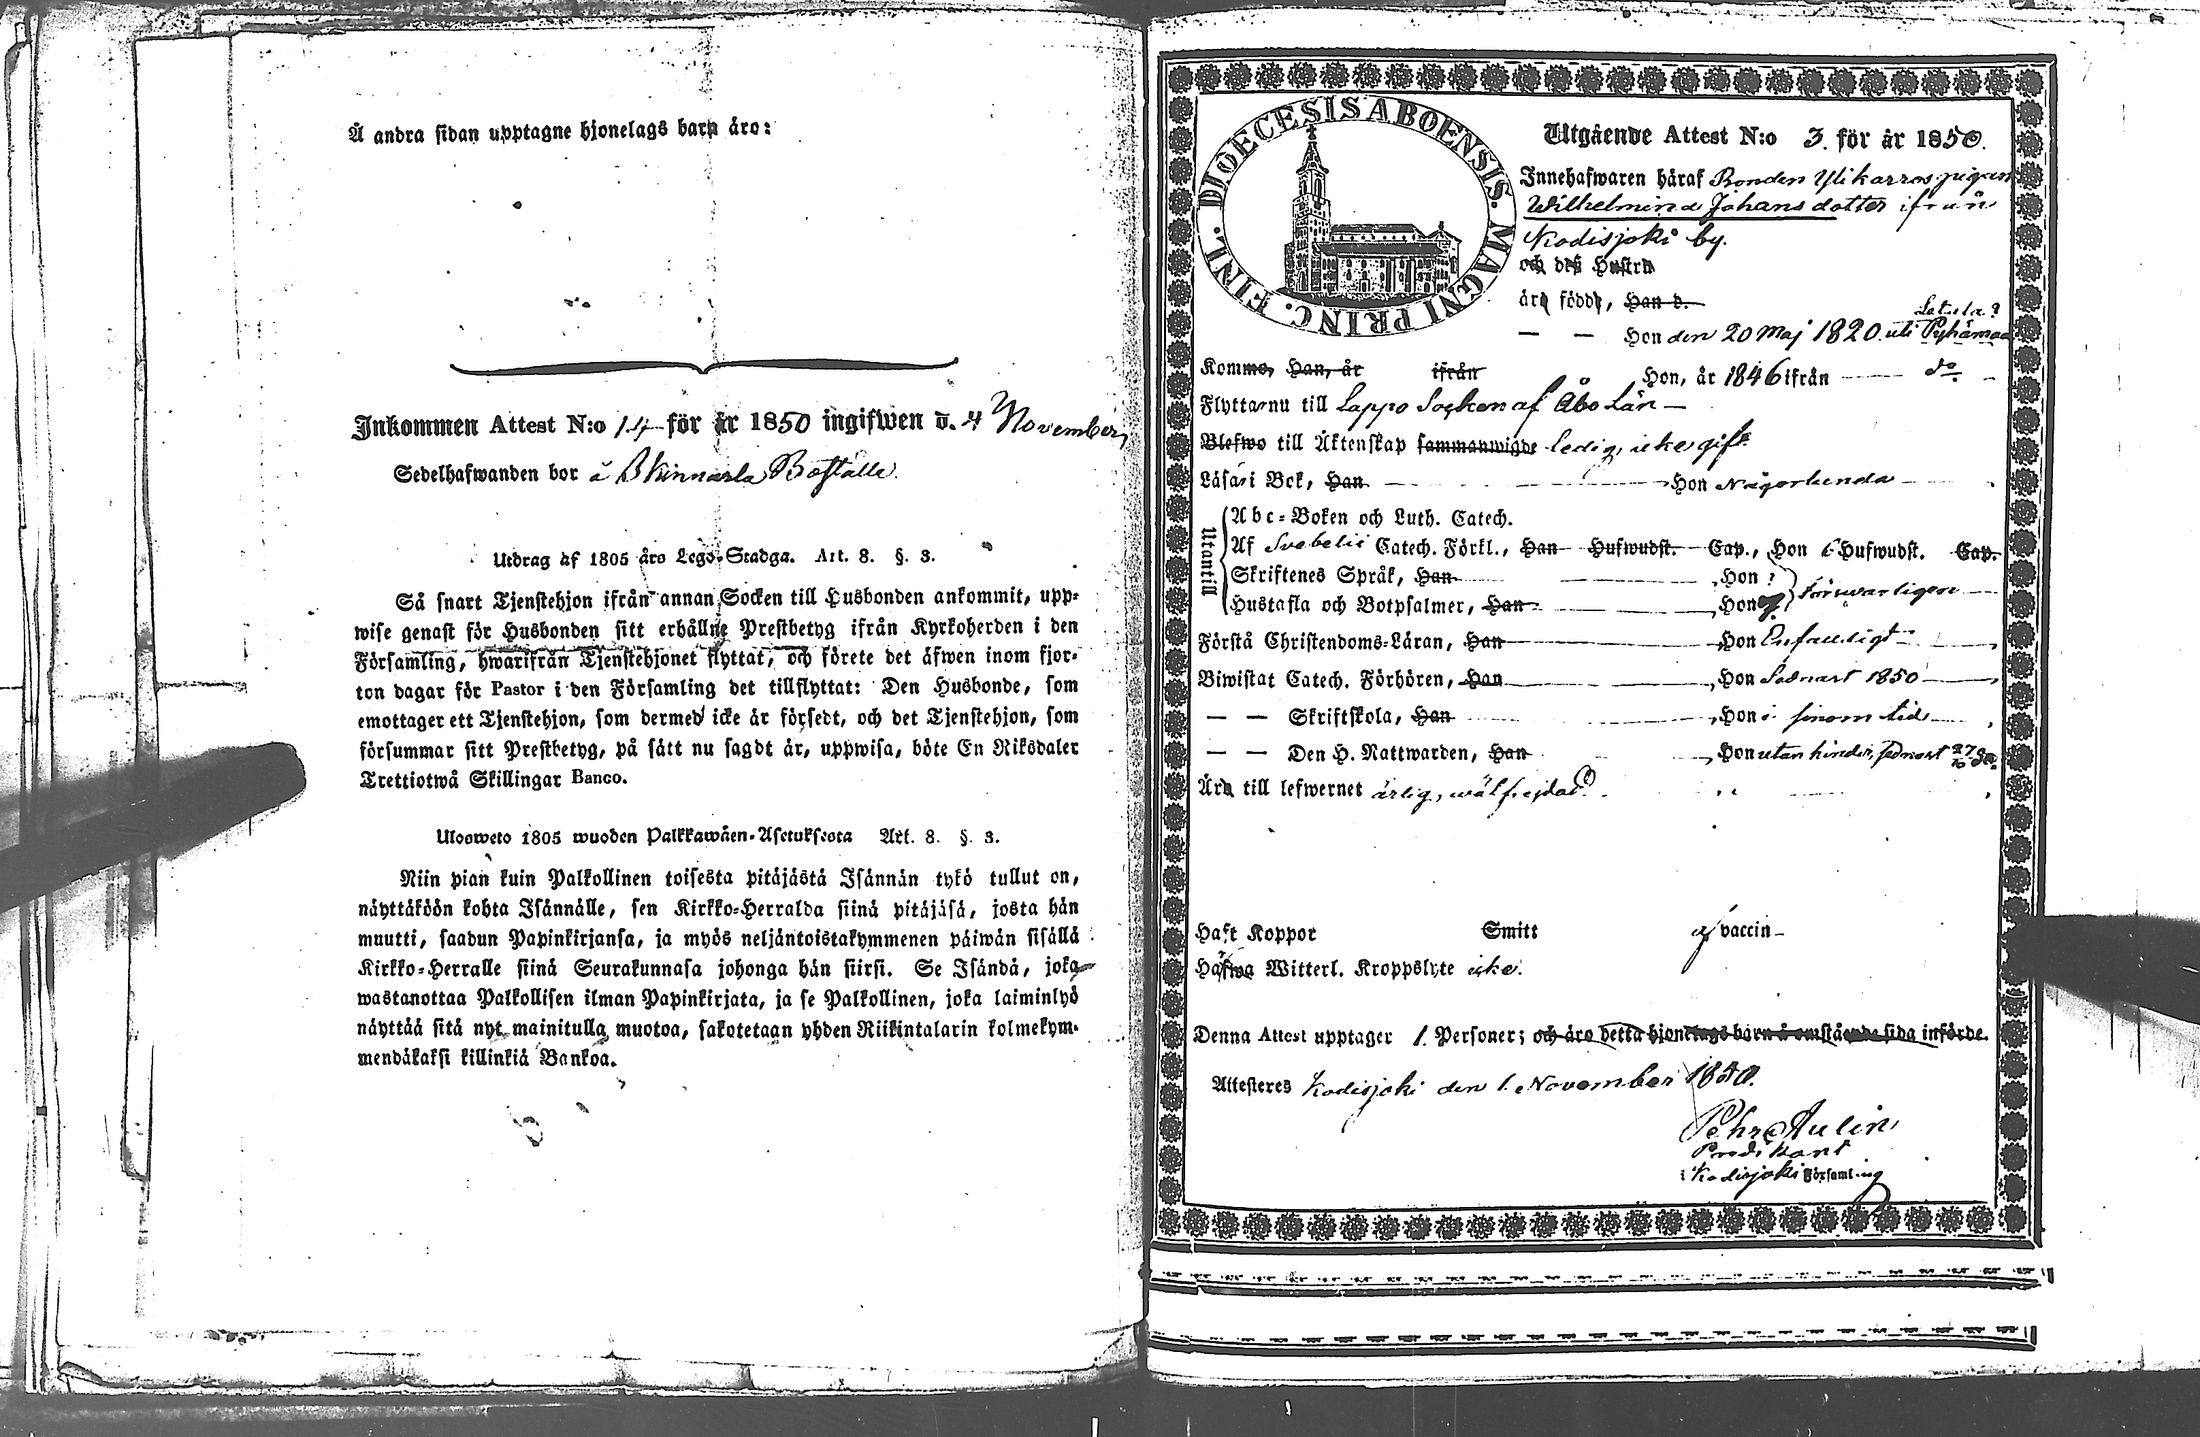 Å andra sidan upptagne hjonelags barn äro:
Inkommen Attest N:o 14 för år 1850 ingifwen d. 4 November
Sedelhafwanden bor å Skinnarla Boställe.
Utdrag af 1805 års Lego-Stadga. Art. 8. §. 3.
Så snart Tjenstehjon ifrån annan Socken till Husbonden ankommit, upp-
wise genast för Husbonden sitt erhållne Prestbetyg ifrån Kyrkoherden i den
Församling, hwarifrån Tjenstehjonet flyttat, och förete det äfwen inom fjor-
ton dagar för Pastor i den Församling det tillflyttat: Den Husbonde, som
emottager ett Tjenstehjon, som dermed icke är försedt, och det Tjenstehjon, som
försummar sitt Prestbetyg, på sätt nu sagdt är, uppwisa, böte En Riksdaler
Trettiotwå Skillingar Banco.
Ulosweto 1805 wuoden Palkkawäen-Asetuksesta Art. 8. §. 3.
Niin pian kuin Palkollinen toisesta pitäjästä Isännän tykö tullut on,
näyttäköön kohta Isännälle, sen Kirkko-Herralda siinä pitäjäsä, josta hän
muutti, saadun Papinkirjansa, ja myös neljäntoistakymmenen päiwän sisällä
Kirkko-Herralle siinä Seurakunnasa johonga hän siirsi. Se Isändä, joka
wastanottaa Palkollisen ilman Papinkirjata, ja se Palkollinen, joka laiminlyö
näyttää sitä nyt mainitulla muotoa, sakotetaan yhden Riikintalarin kolmekym-
mendäkaksi killinkiä Bankoa.
DIOECESIS ABOENSIS. MAGNI PRINC. FINL.
Utgående Attest N:o 3. för år 1850.
Innehafwaren häraf Bonden Ylikarras pigan
Wilhelmina Johansdotter ifrån
Kodisjoki by.
och deß Hustru
äro födde, Han d.
Letala?
— — Hon den 20 Maj 1820. uti Pyhämaa
Komme, Han, år ifrån Hon, år 1846 ifrån — do —
Flyttar nu till Lappo Socken af Åbo Län —
Blefwo till Äktenskap sammanwigde ledig, icke gift.
Läsa i Bok, Han — Hon Någorlunda
Utantill
Abc-Boken och Luth. Catech.
Af Svebelii Catech. Förkl., Han Hufwudst. Cap., Hon 6 Hufwudst. Cap.
Skriftenes Språk, Han — Hon
Hustafla och Botpsalmer, Han — Hon försvarligen
Förstå Christendoms-Läran, Han — Hon Enfaldigt
Biwistat Catech. Förhören, Han — Hon Sednast 1850
— — Skriftskola, Han — Hon i sinom tid
— — Den H. Nattwarden, Han — Hon utan hinder, sednast 27/10 50.
Äro till lefwernet ärlig, wälfrejdad.
Haft Koppor Smitt vaccin
Hafwa Witterl. Kroppslyte icke.
Denna Attest upptager 1 Personer; och äro detta hjonelags barn å omstående sida införde.
Attesteras Kodisjoki den 1. November 1850.
Pehr Aulin
Predikant
i Kodisjoki Församling